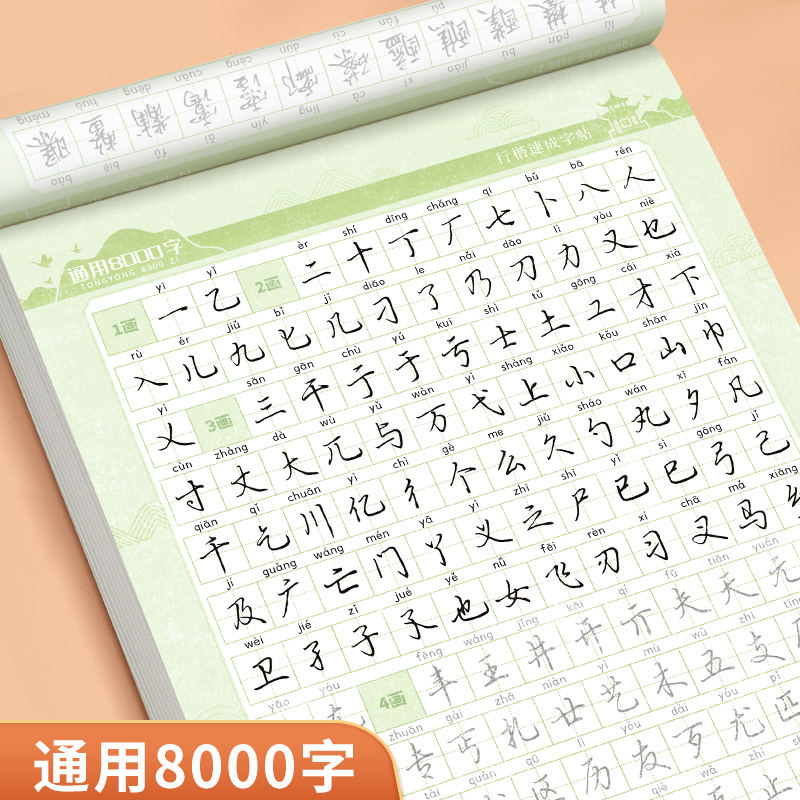 行楷速成字帖
通用8000字
TONGYONG 8000 ZI
yī yǐ èr shí dīng chǎng qī bǔ bā rén
1画 一 乙 2画 二 十 丁 厂 七 卜 八 人
rù ér jiǔ bǐ jǐ diāo le nǎi dāo lì yòu niè
入 儿 九 匕 几 刁 了 乃 刀 力 又 乜
yì sān gān chù yú kuī shì tǔ gōng cái xià
乂 3画 三 干 亍 于 亏 士 土 工 才 下
cùn zhàng dà wù yǔ wàn yì shàng xiǎo kǒu shān jīn
寸 丈 大 兀 与 万 弋 上 小 口 山 巾
qiān qǐ chuān yì chì gè me jiǔ sháo wán xī fán
千 乞 川 亿 彳 个 么 久 勺 丸 夕 凡
jí guǎng wáng mén yā yì zhī shī yǐ sì gōng jǐ
及 广 亡 门 丫 义 之 尸 已 巳 弓 己
wèi jié zǐ jué yě nǚ fēi rèn xí chā mǎ xiāng
卫 孑 子 孓 也 女 飞 刃 习 叉 马
yāo yóu fēng wáng jǐng kāi qí fū tiān yuán
4画 丰 王 井 开 亓 夫 天 元
zhuān gài zhā niàn yì mù wǔ zhī
专 丐 扎 廿 艺 木 五 支
tài quǎn qū lì yǒu dǎi yóu pǐ
区 历 友 歹 尤 匹
通用8000字